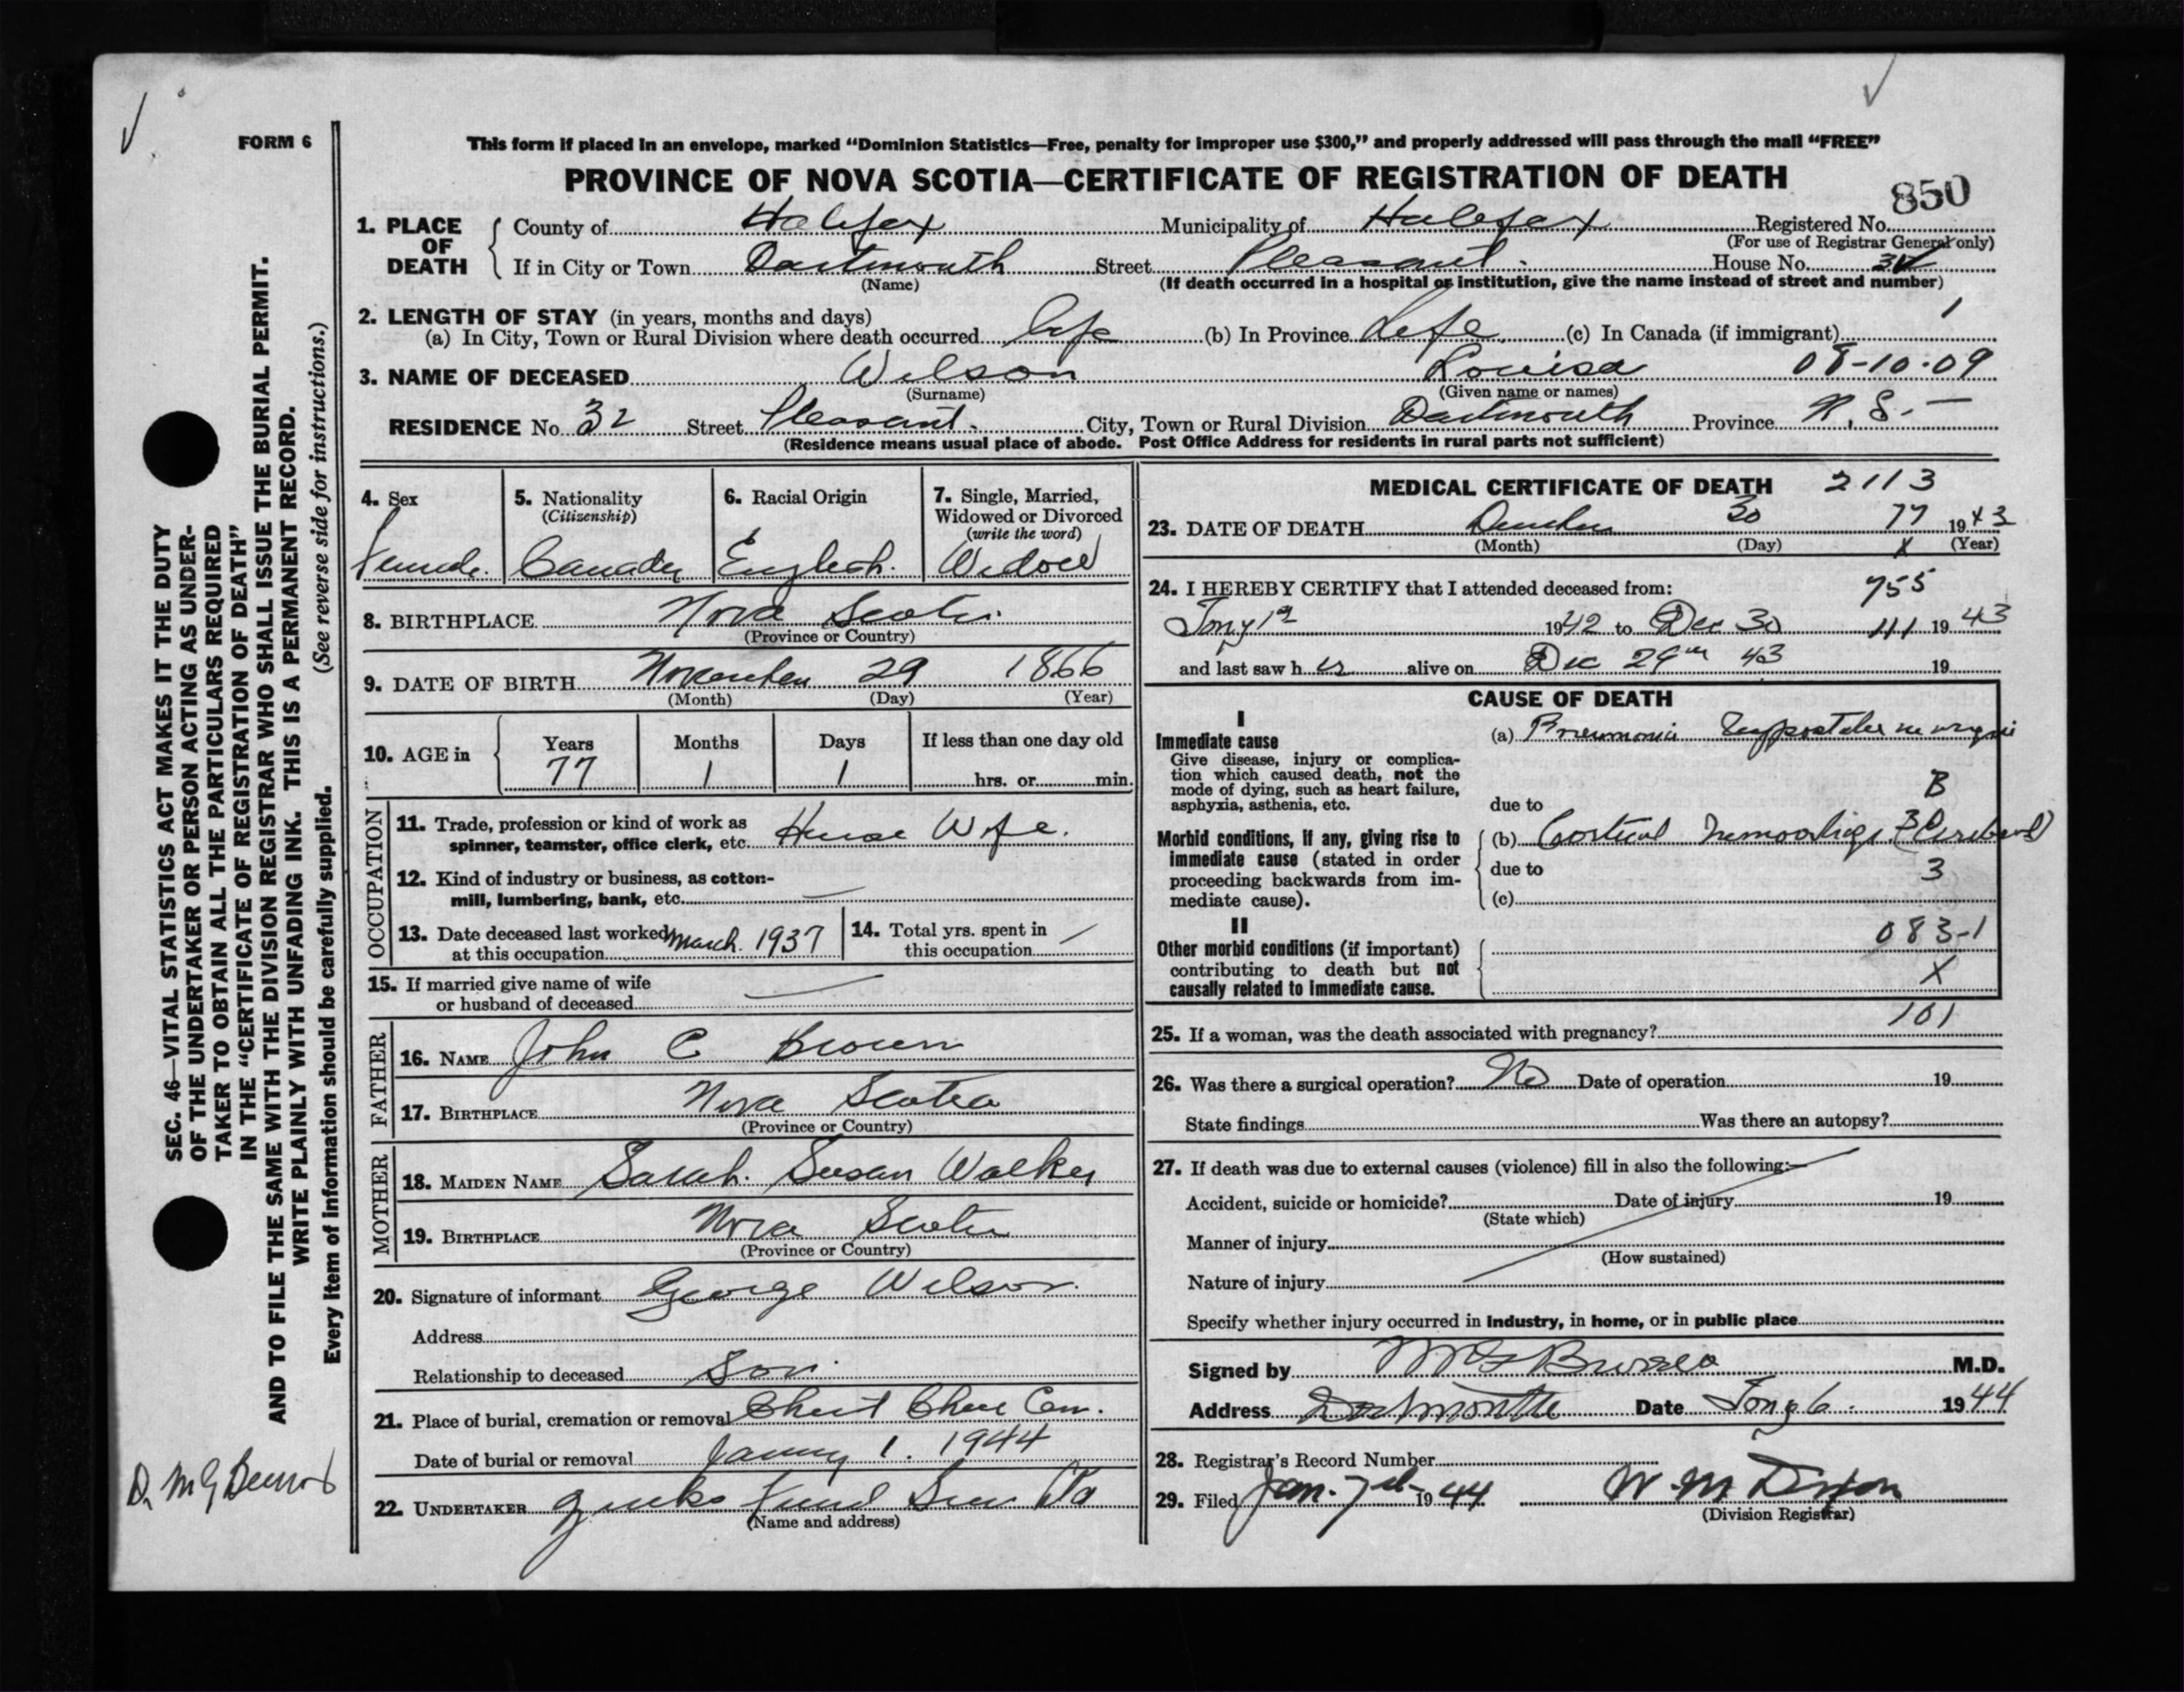 FORM 6
This form if placed in an envelope, marked “Dominion Statistics—Free, penalty for improper use $300,” and properly addressed will pass through the mail “FREE”
PROVINCE OF NOVA SCOTIA—CERTIFICATE OF REGISTRATION OF DEATH
850
1. PLACE OF DEATH
County of Halifax Municipality of Halifax Registered No.
(For use of Registrar General only)
If in City or Town Dartmouth Street Pleasant. House No. 32
(Name)
(If death occurred in a hospital or institution, give the name instead of street and number)
2. LENGTH OF STAY (in years, months and days)
(a) In City, Town or Rural Division where death occurred life (b) In Province Life (c) In Canada (if immigrant)
3. NAME OF DECEASED Wilson Louisa 08-10-09
(Surname) (Given name or names)
RESIDENCE No. 32 Street Pleasant. City, Town or Rural Division Dartmouth Province N.S.—
(Residence means usual place of abode. Post Office Address for residents in rural parts not sufficient)
4. Sex
Female.
5. Nationality
(Citizenship)
Canada
6. Racial Origin
English.
7. Single, Married, Widowed or Divorced
(write the word)
Widow
8. BIRTHPLACE Nova Scotia
(Province or Country)
9. DATE OF BIRTH November 29 1866
(Month) (Day) (Year)
10. AGE in
Years Months Days If less than one day old
77 1 1 hrs. or min.
OCCUPATION
11. Trade, profession or kind of work as
spinner, teamster, office clerk, etc. House Wife.
12. Kind of industry or business, as cotton-
mill, lumbering, bank, etc. —
13. Date deceased last worked
at this occupation March. 1937
14. Total yrs. spent in
this occupation
15. If married give name of wife
or husband of deceased
FATHER
16. NAME John C Brown
17. BIRTHPLACE Nova Scotia
(Province or Country)
MOTHER
18. MAIDEN NAME Sarah. Susan Walker
19. BIRTHPLACE Nova Scotia
(Province or Country)
20. Signature of informant George Wilson.
Address
Relationship to deceased Son.
21. Place of burial, cremation or removal Christ Church Cem.
Date of burial or removal January 1. 1944
22. UNDERTAKER
(Name and address)
MEDICAL CERTIFICATE OF DEATH 2113
23. DATE OF DEATH December 30 77 1943
(Month) (Day) X (Year)
24. I HEREBY CERTIFY that I attended deceased from: 755
1st 1942 to Dec 30 111 1943
and last saw her alive on Dec 29th 43 19
CAUSE OF DEATH
I
Immediate cause
Give disease, injury or complica-
tion which caused death, not the
mode of dying, such as heart failure,
asphyxia, asthenia, etc.
(a) Pneumonia
B
due to
Morbid conditions, if any, giving rise to
immediate cause (stated in order
proceeding backwards from im-
mediate cause).
(b) Cortical (Cerebral)
due to 3
(c)
II
Other morbid conditions (if important)
contributing to death but not
causally related to immediate cause.
083-1
X
101
25. If a woman, was the death associated with pregnancy?
26. Was there a surgical operation? No Date of operation 19
State findings Was there an autopsy?
27. If death was due to external causes (violence) fill in also the following:—
Accident, suicide or homicide? Date of injury 19
(State which)
Manner of injury
(How sustained)
Nature of injury
Specify whether injury occurred in industry, in home, or in public place
Signed by M.D.
Address Dartmouth Date 6. 1944
28. Registrar's Record Number
29. Filed Jan. 7th 1944 W. M Dixon
(Division Registrar)
SEC. 46—VITAL STATISTICS ACT MAKES IT THE DUTY
OF THE UNDERTAKER OR PERSON ACTING AS UNDER-
TAKER TO OBTAIN ALL THE PARTICULARS REQUIRED
IN THE “CERTIFICATE OF REGISTRATION OF DEATH”
AND TO FILE THE SAME WITH THE DIVISION REGISTRAR WHO SHALL ISSUE THE BURIAL PERMIT.
WRITE PLAINLY WITH UNFADING INK. THIS IS A PERMANENT RECORD.
Every item of information should be carefully supplied. (See reverse side for instructions.)